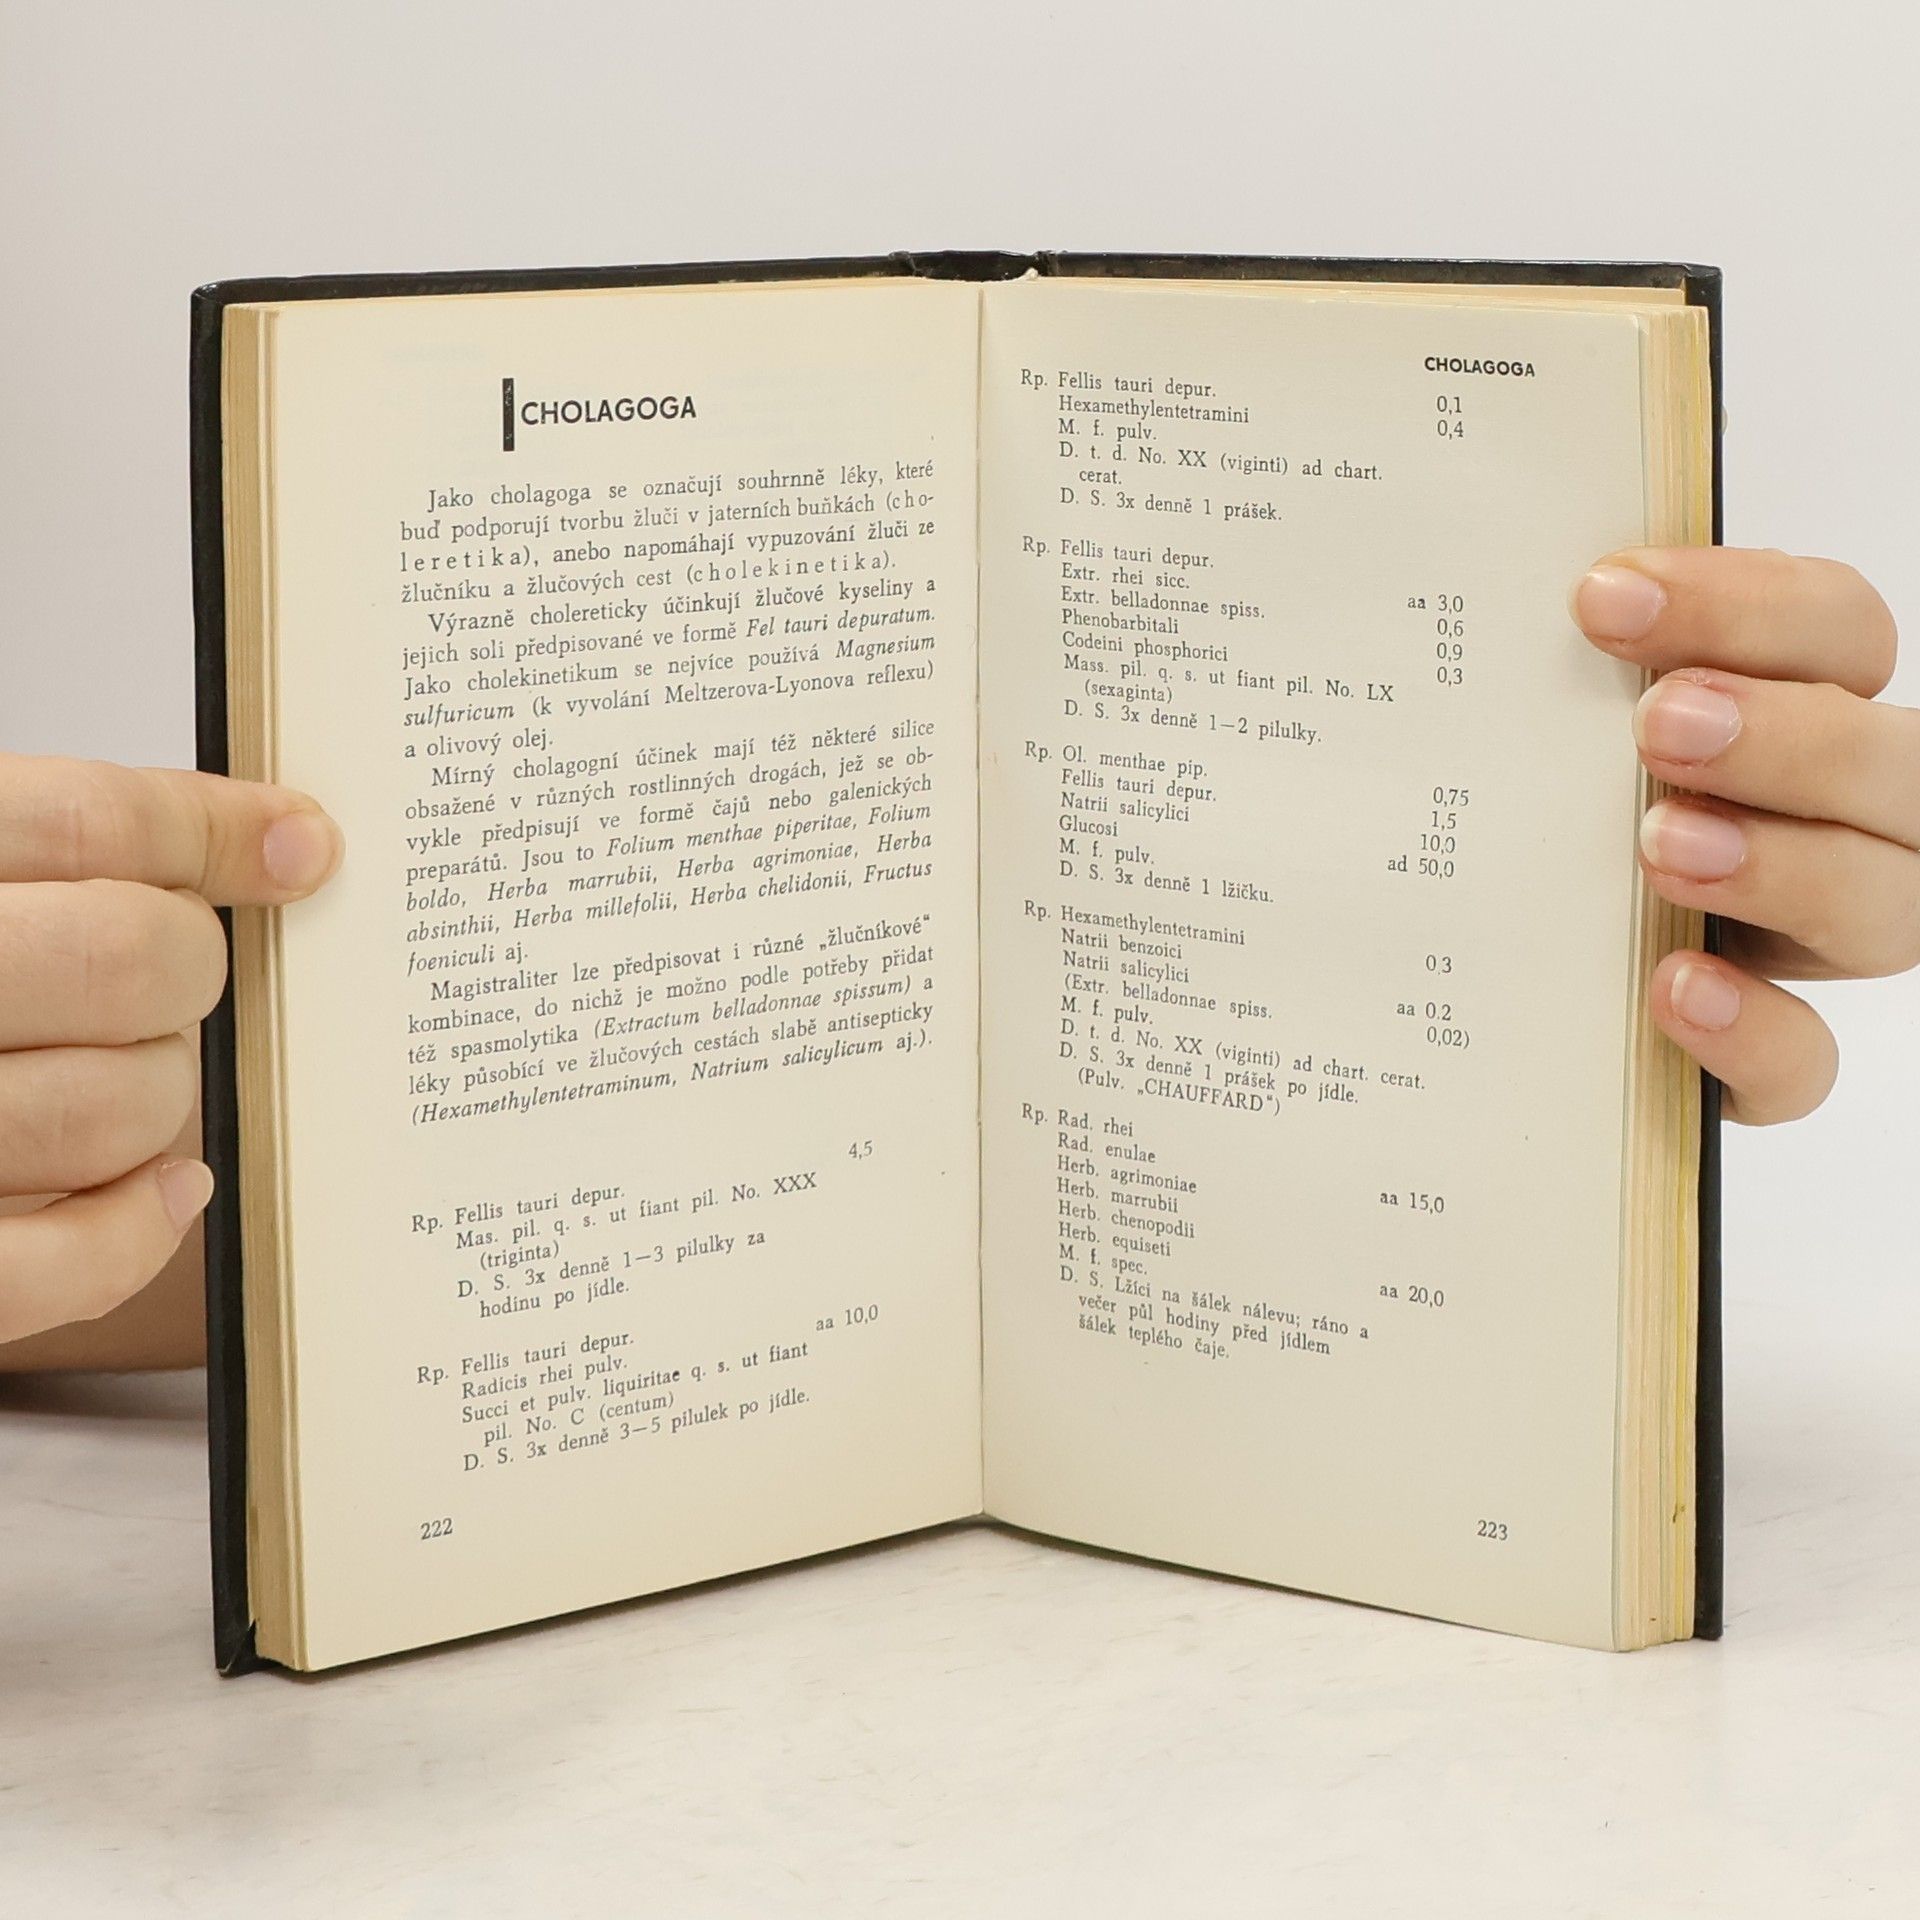 CHOLAGOGA
Jako cholagoga se označují souhrnně léky, které
buď podporují tvorbu žluči v jaterních buňkách (cho-
leretika), anebo napomáhají vypuzování žluči ze
žlučníku a žlučových cest (cholekinetika).
Výrazně cholereticky účinkují žlučové kyseliny a
jejich soli předpisované ve formě Fel tauri depuratum.
Jako cholekinetikum se nejvíce používá Magnesium
sulfuricum (k vyvolání Meltzerova-Lyonova reflexu)
a olivový olej.
Mírný cholagogní účinek mají též některé silice
obsažené v různých rostlinných drogách, jež se ob-
vykle předpisují ve formě čajů nebo galenických
preparátů. Jsou to Folium menthae piperitae, Folium
boldo, Herba marrubii, Herba agrimoniae, Herba
absinthii, Herba millefolii, Herba chelidonii, Fructus
foeniculi aj.
Magistraliter lze předpisovat i různé „žlučníkové“
kombinace, do nichž je možno podle potřeby přidat
též spasmolytika (Extractum belladonnae spissum) a
léky působící ve žlučových cestách slabě antisepticky
(Hexamethylentetraminum, Natrium salicylicum aj.).
Rp. Fellis tauri depur. 4,5
Mas. pil. q. s. ut fiant pil. No. XXX
(triginta)
D. S. 3x denně 1—3 pilulky za
hodinu po jídle.
Rp. Fellis tauri depur.
Radicis rhei pulv. aa 10,0
Succi et pulv. liquiritae q. s. ut fiant
pil. No. C (centum)
D. S. 3x denně 3—5 pilulek po jídle.
222
CHOLAGOGA
Rp. Fellis tauri depur. 0,1
Hexamethylentetramini 0,4
M. f. pulv.
D. t. d. No. XX (viginti) ad chart.
cerat.
D. S. 3x denně 1 prášek.
Rp. Fellis tauri depur.
Extr. rhei sicc. aa 3,0
Extr. belladonnae spiss. 0,6
Phenobarbitali 0,9
Codeini phosphorici 0,3
Mass. pil. q. s. ut fiant pil. No. LX
(sexaginta)
D. S. 3x denně 1—2 pilulky.
Rp. Ol. menthae pip. 0,75
Fellis tauri depur. 1,5
Natrii salicylici 10,0
Glucosi ad 50,0
M. f. pulv.
D. S. 3x denně 1 lžičku.
Rp. Hexamethylentetramini 0,3
Natrii benzoici
Natrii salicylici aa 0.2
(Extr. belladonnae spiss. 0,02)
M. f. pulv.
D. t. d. No. XX (viginti) ad chart. cerat.
D. S. 3x denně 1 prášek po jídle.
(Pulv. „CHAUFFARD“)
Rp. Rad. rhei
Rad. enulae aa 15,0
Herb. agrimoniae
Herb. marrubii
Herb. chenopodii
Herb. equiseti aa 20,0
M. f. spec.
D. S. Lžíci na šálek nálevu; ráno a
večer půl hodiny před jídlem
šálek teplého čaje.
223